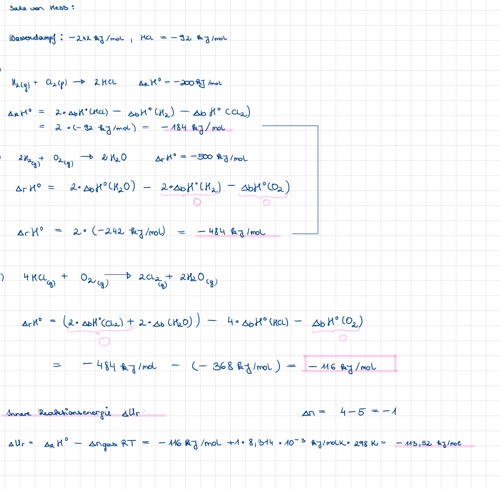 Satz von Hess:
Wasserdampf: -242 kJ/mol, HCl = -92 kJ/mol
H₂(g) + Cl₂(g) → 2HCl ΔRH° = -200 kJ/mol
ΔRH° = 2·ΔbH°(HCl) - ΔbH°(H₂) - ΔbH°(Cl₂)
= 2·(-92 kJ/mol) = -184 kJ/mol
2H₂(g) + O₂(g) → 2H₂O ΔrH° = -500 kJ/mol
ΔrH° = 2·ΔbH°(H₂O) - 2·ΔbH°(H₂) - ΔbH°(O₂)
0 0
ΔrH° = 2·(-242 kJ/mol) = -484 kJ/mol
) 4HCl(g) + O₂(g) → 2Cl₂(g) + 2H₂O(g)
ΔrH° = (2·ΔbH°(Cl₂) + 2·Δb(H₂O)) - 4·ΔbH°(HCl) - ΔbH°(O₂)
0 0
= -484 kJ/mol - (-368 kJ/mol) = -116 kJ/mol
Innere Reaktionsenergie ΔUr: Δn = 4-5 = -1
ΔUr = ΔRH° - Δngas RT = -116 kJ/mol +1·8,314·10⁻³ kJ/molK·298K = -113,52 kJ/mol